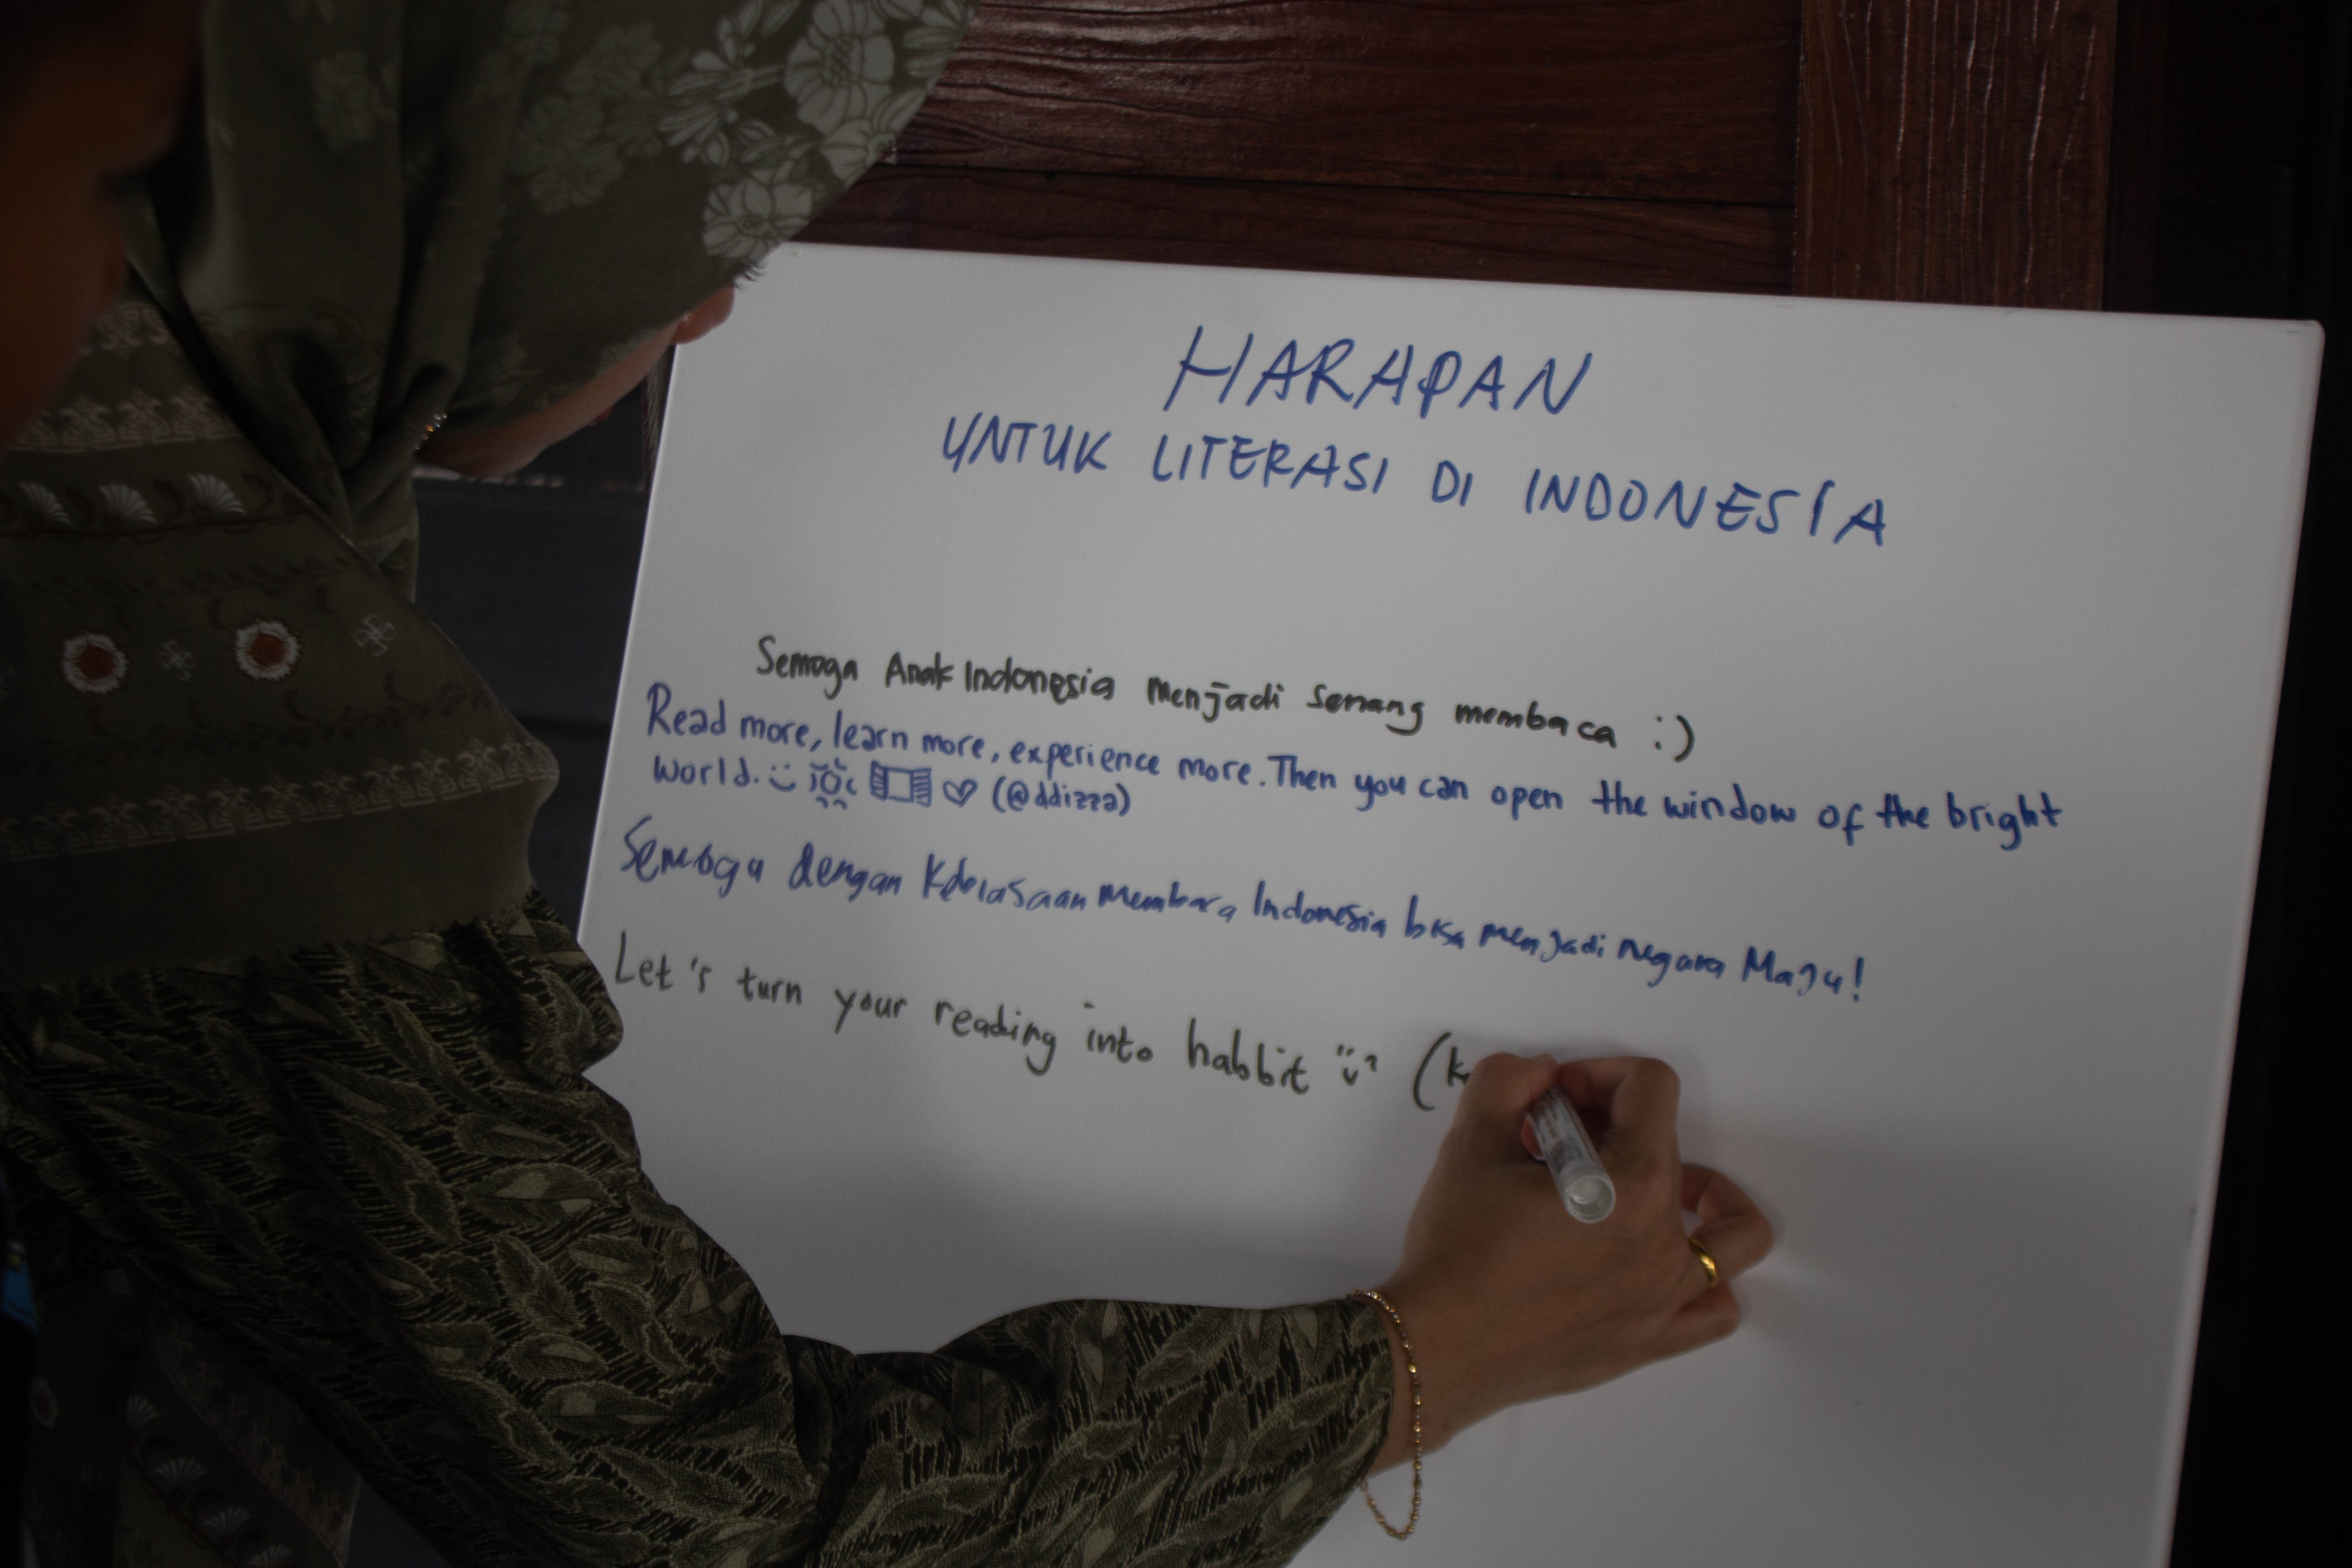 HARAPAN
UNTUK LITERASI DI INDONESIA
Semoga Anak Indonesia menjadi senang membaca :)
Read more, learn more, experience more. Then you can open the window of the bright
world. (@ddizza)
Semoga dengan Kebiasaan Membaca Indonesia bisa menjadi negara Maju!
Let's turn your reading into habbit (k